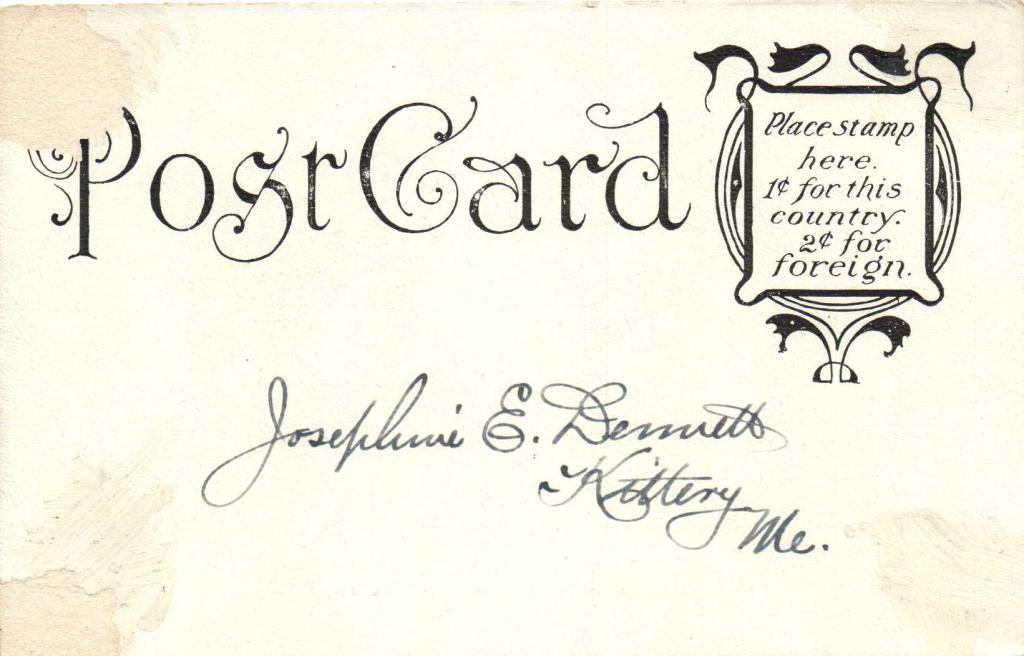 Post Card
Place stamp
here.
1¢ for this
country.
2¢ for
foreign.
Josephine E. Dennett
Kittery
Me.